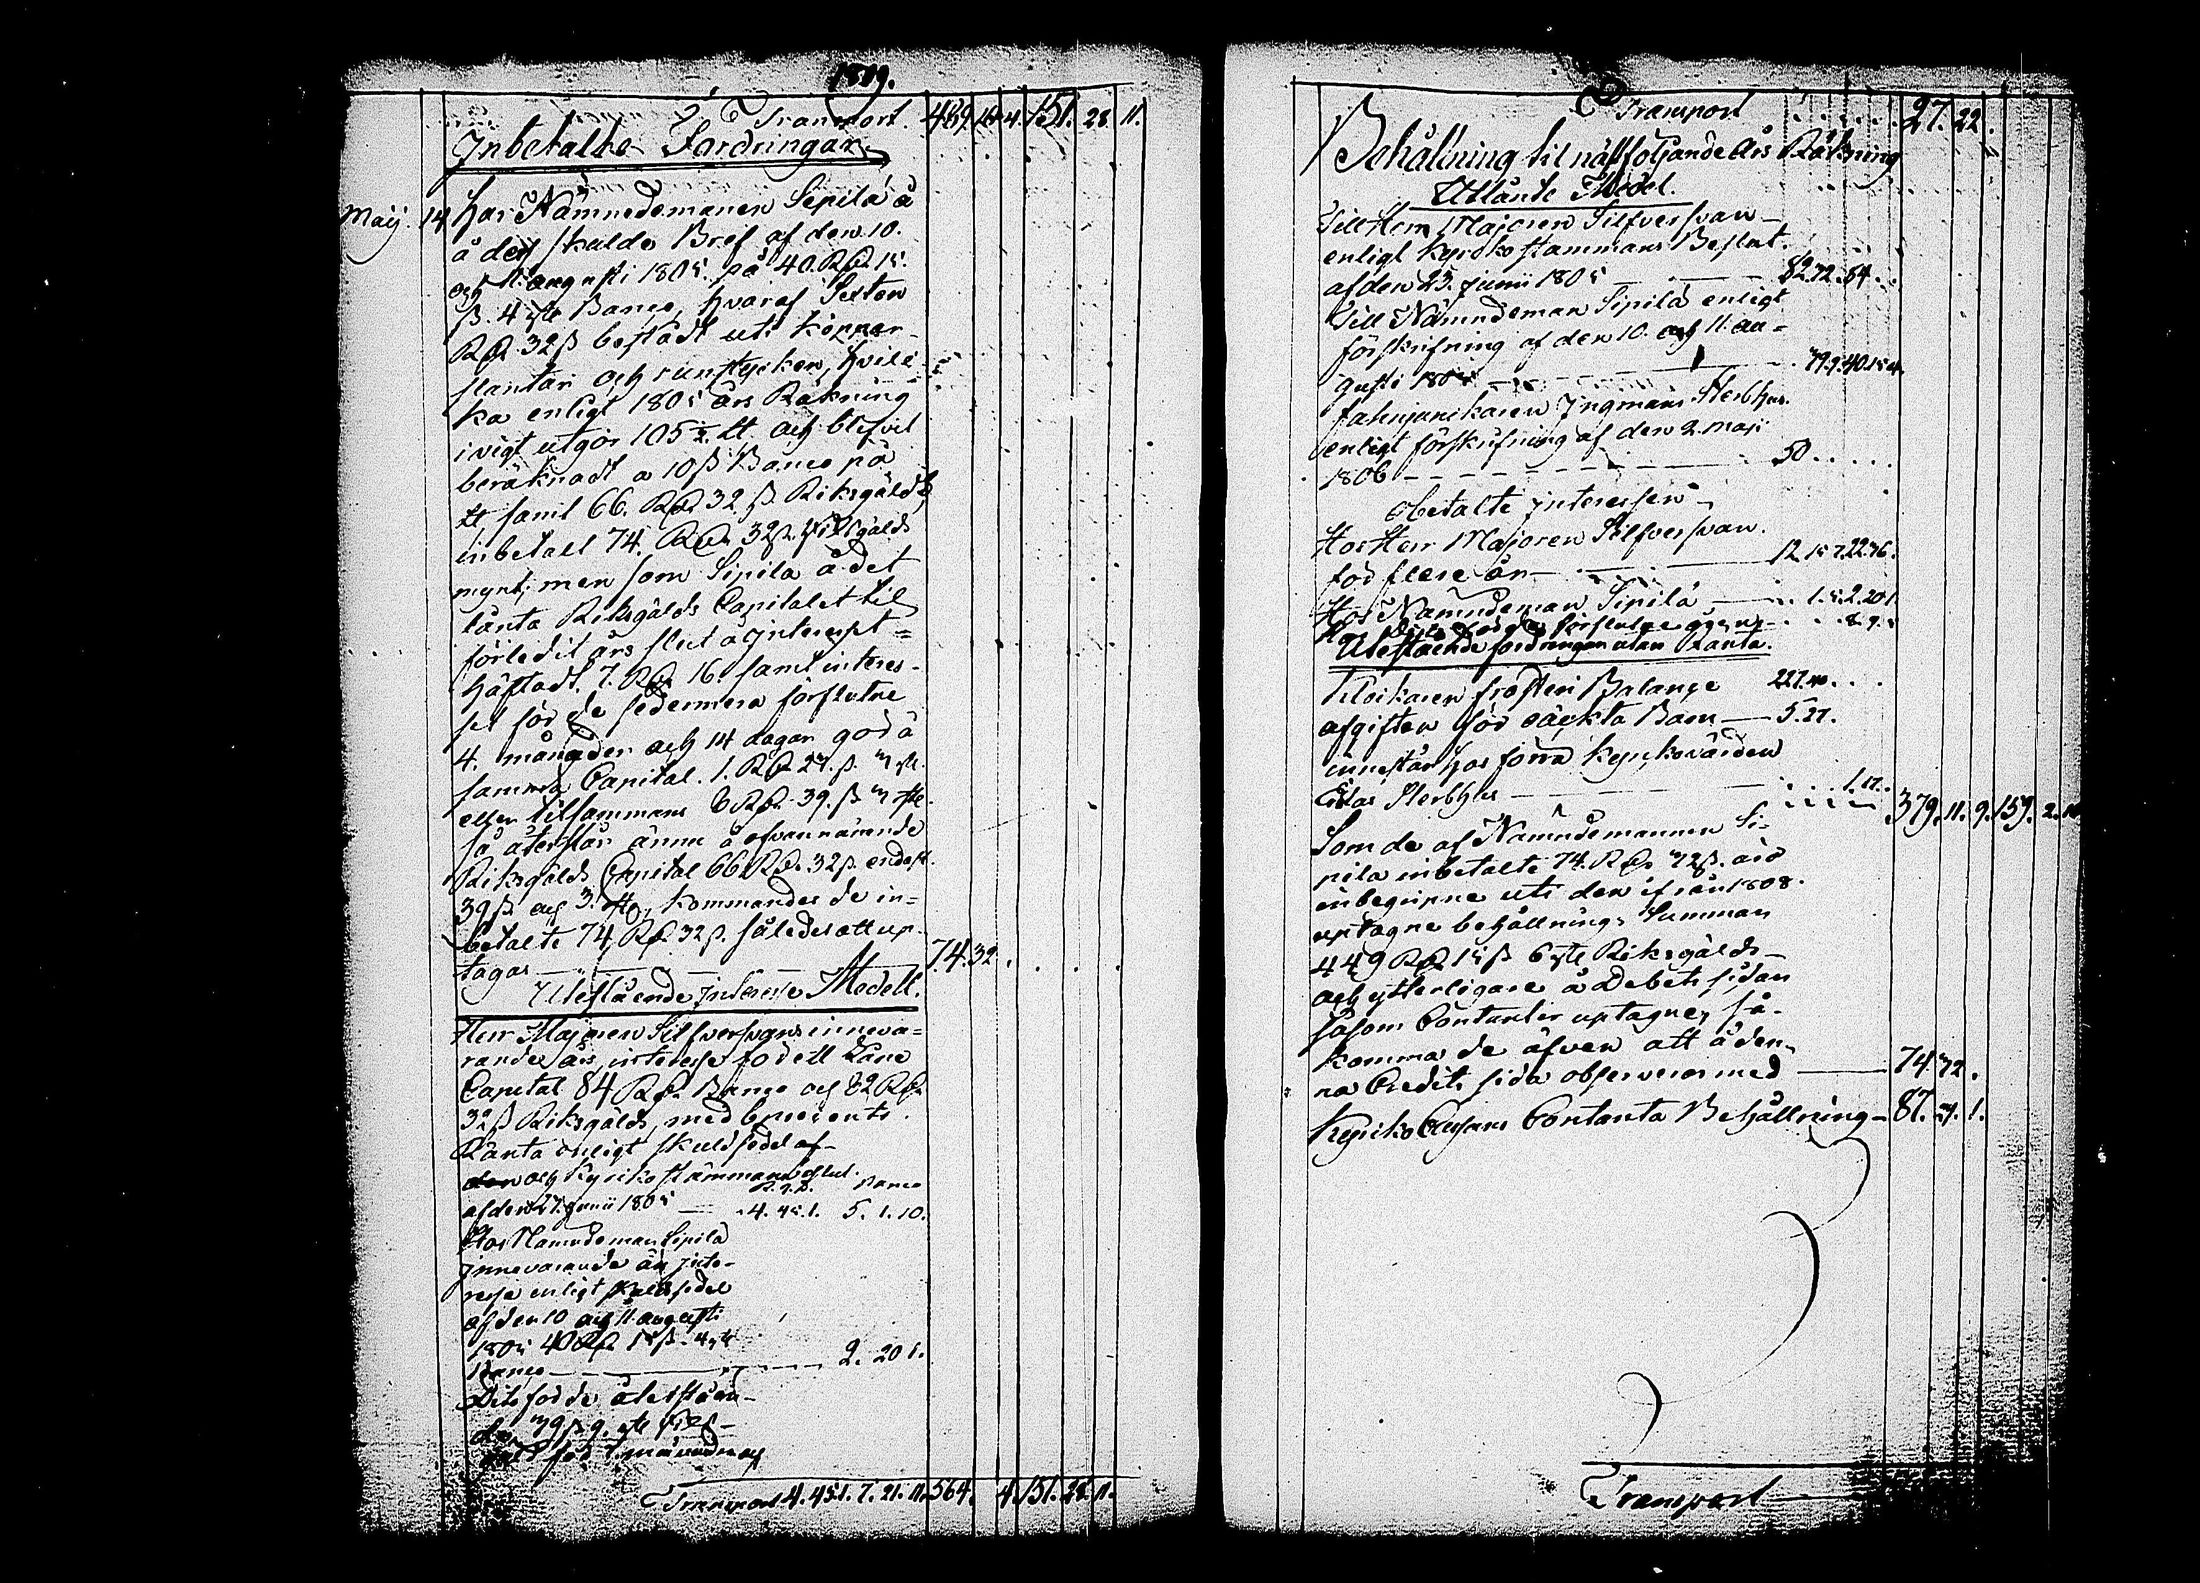 1809.
Transport. 489. 16. 4. 151. 28. 11.
Inbetalte Fordringar
Maij. 14 har Nämndemannen Sipilä å
å dess skulde Bref af den 10.
och 11. augusti 1805. på 40. Rd 15.
ß. 4 rst Banco, hvaraf Sexton
Rd 32 ß bestådt uti koppar
slantar och runstycken, hvil-
ka enligt 1805 års Räkning
i vigt utgör 105 ½ ℔ och blifvit
beräknadt a 10 ß Banco på
℔ samt 66. Rd 32 ß Riksgälds
inbetalt 74. Rd 32 ß. Riksgälds
mynt; men som Sipilä å det
lånta Riksgälds Capitalet til
förledit års slut af interesset
häftadt. 7. Rd 16. samt interes-
set för de sedermera förflutne
4. månader och 14 dagar god å
samma Capital. 1. Rd 27. ß.
eller tilsammans 8 Rd 39. ß
så återstår ännu å ofvannämnde
Riksgälds Capital 66 Rd 32 ß. endast
39 ß och 3. rst, kommandes de in-
betalte 74 Rd 32 ß. således att up-
tagas 74. 32
Utestående Interesse Medell.
Herr Majoren Silfversvans inneva-
rande års interesse for ett Låne
Capital 84 Rd Banco och 82 Rd
32 ß Riksgälds, med 6 procents
Ränta enligt skuldsedel af
den och Kyrkostämmans beslut.
R.g.s. Banco
af den 23. Junii 1805 4. 45. 1. 5. 1. 10.
Hos Nämndeman Sipilä
innevarande års inte-
resse enligt skuldsedel
af den 10 och 11. augusti
1805 40 Rd 15 ß. 4 rst
Banco 2. 20 1.
Dito för de återståen-
de 39 ß 9. rst Riks-
gäld för 7. månader och
Transport 4. 45. 1. 7. 21. 11. 564. 4. 151. 28. 11.
Transport 27. 22.
Behållning til nästföljande Års Räkning
Utlånte Medel.
Till Herr Majoren Silfversvan
enligt Kyrkostämmans Beslut
af den 23. junii 1805 82. 32. 84.
Till Nämndeman Sipilä enligt
förskrifning af den 10. och 11. au-
gusti 1805 39. 9. 40. 15. 4.
fahnjunkaren Ingmans Sterbhus.
enligt förskrifning af den 2. maji
1806 50.
Obetalte interessen
Hos Herr Majoren Silfversvan.
för flere år 12. 15. 7. 22. 36.
Hos Nämndeman Sipilä 1. 5. 2. 20 1.
Utestående fordringar utan Ränta.
Klockaren Balange 227. 40.
afgiften för oäckta Barn 5. 27.
innestår hos förra Kyrkovärden
Sterbhus 1. 17.
379. 11. 9. 159. 2. 10
Som de af Nämndemannen Si-
pilä inbetalte 74. Rd 32 ß. äro
inbegripne uti den ifrån 1808.
uptagne behållnings Summan
449 Rd 15 ß 6 rst Riksgälds
och ytterligare å Debets sidan
såsom Contanter uptagne, så
komma de äfven att å den-
na Credits sida observeras med 74. 32.
Kyrko Cassans Contanta Behållning 87. 1.
Transport